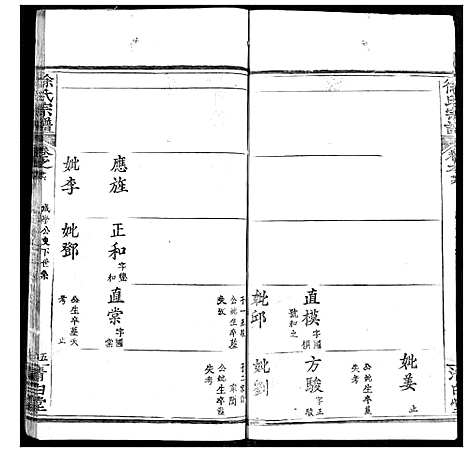 徐氏宗譜
卷之
妣姜
止
直模
字國模
號和之
方駿
字正駿
妣邱
妣劉
公妣生卒墓
失考
子二
公妣生卒墓
失考
應旌
正和
字變和
直棠
字國棠
妣李
妣鄧
公生卒墓失
考
止
徐氏宗譜
卷之
公支下世系
五
清白堂